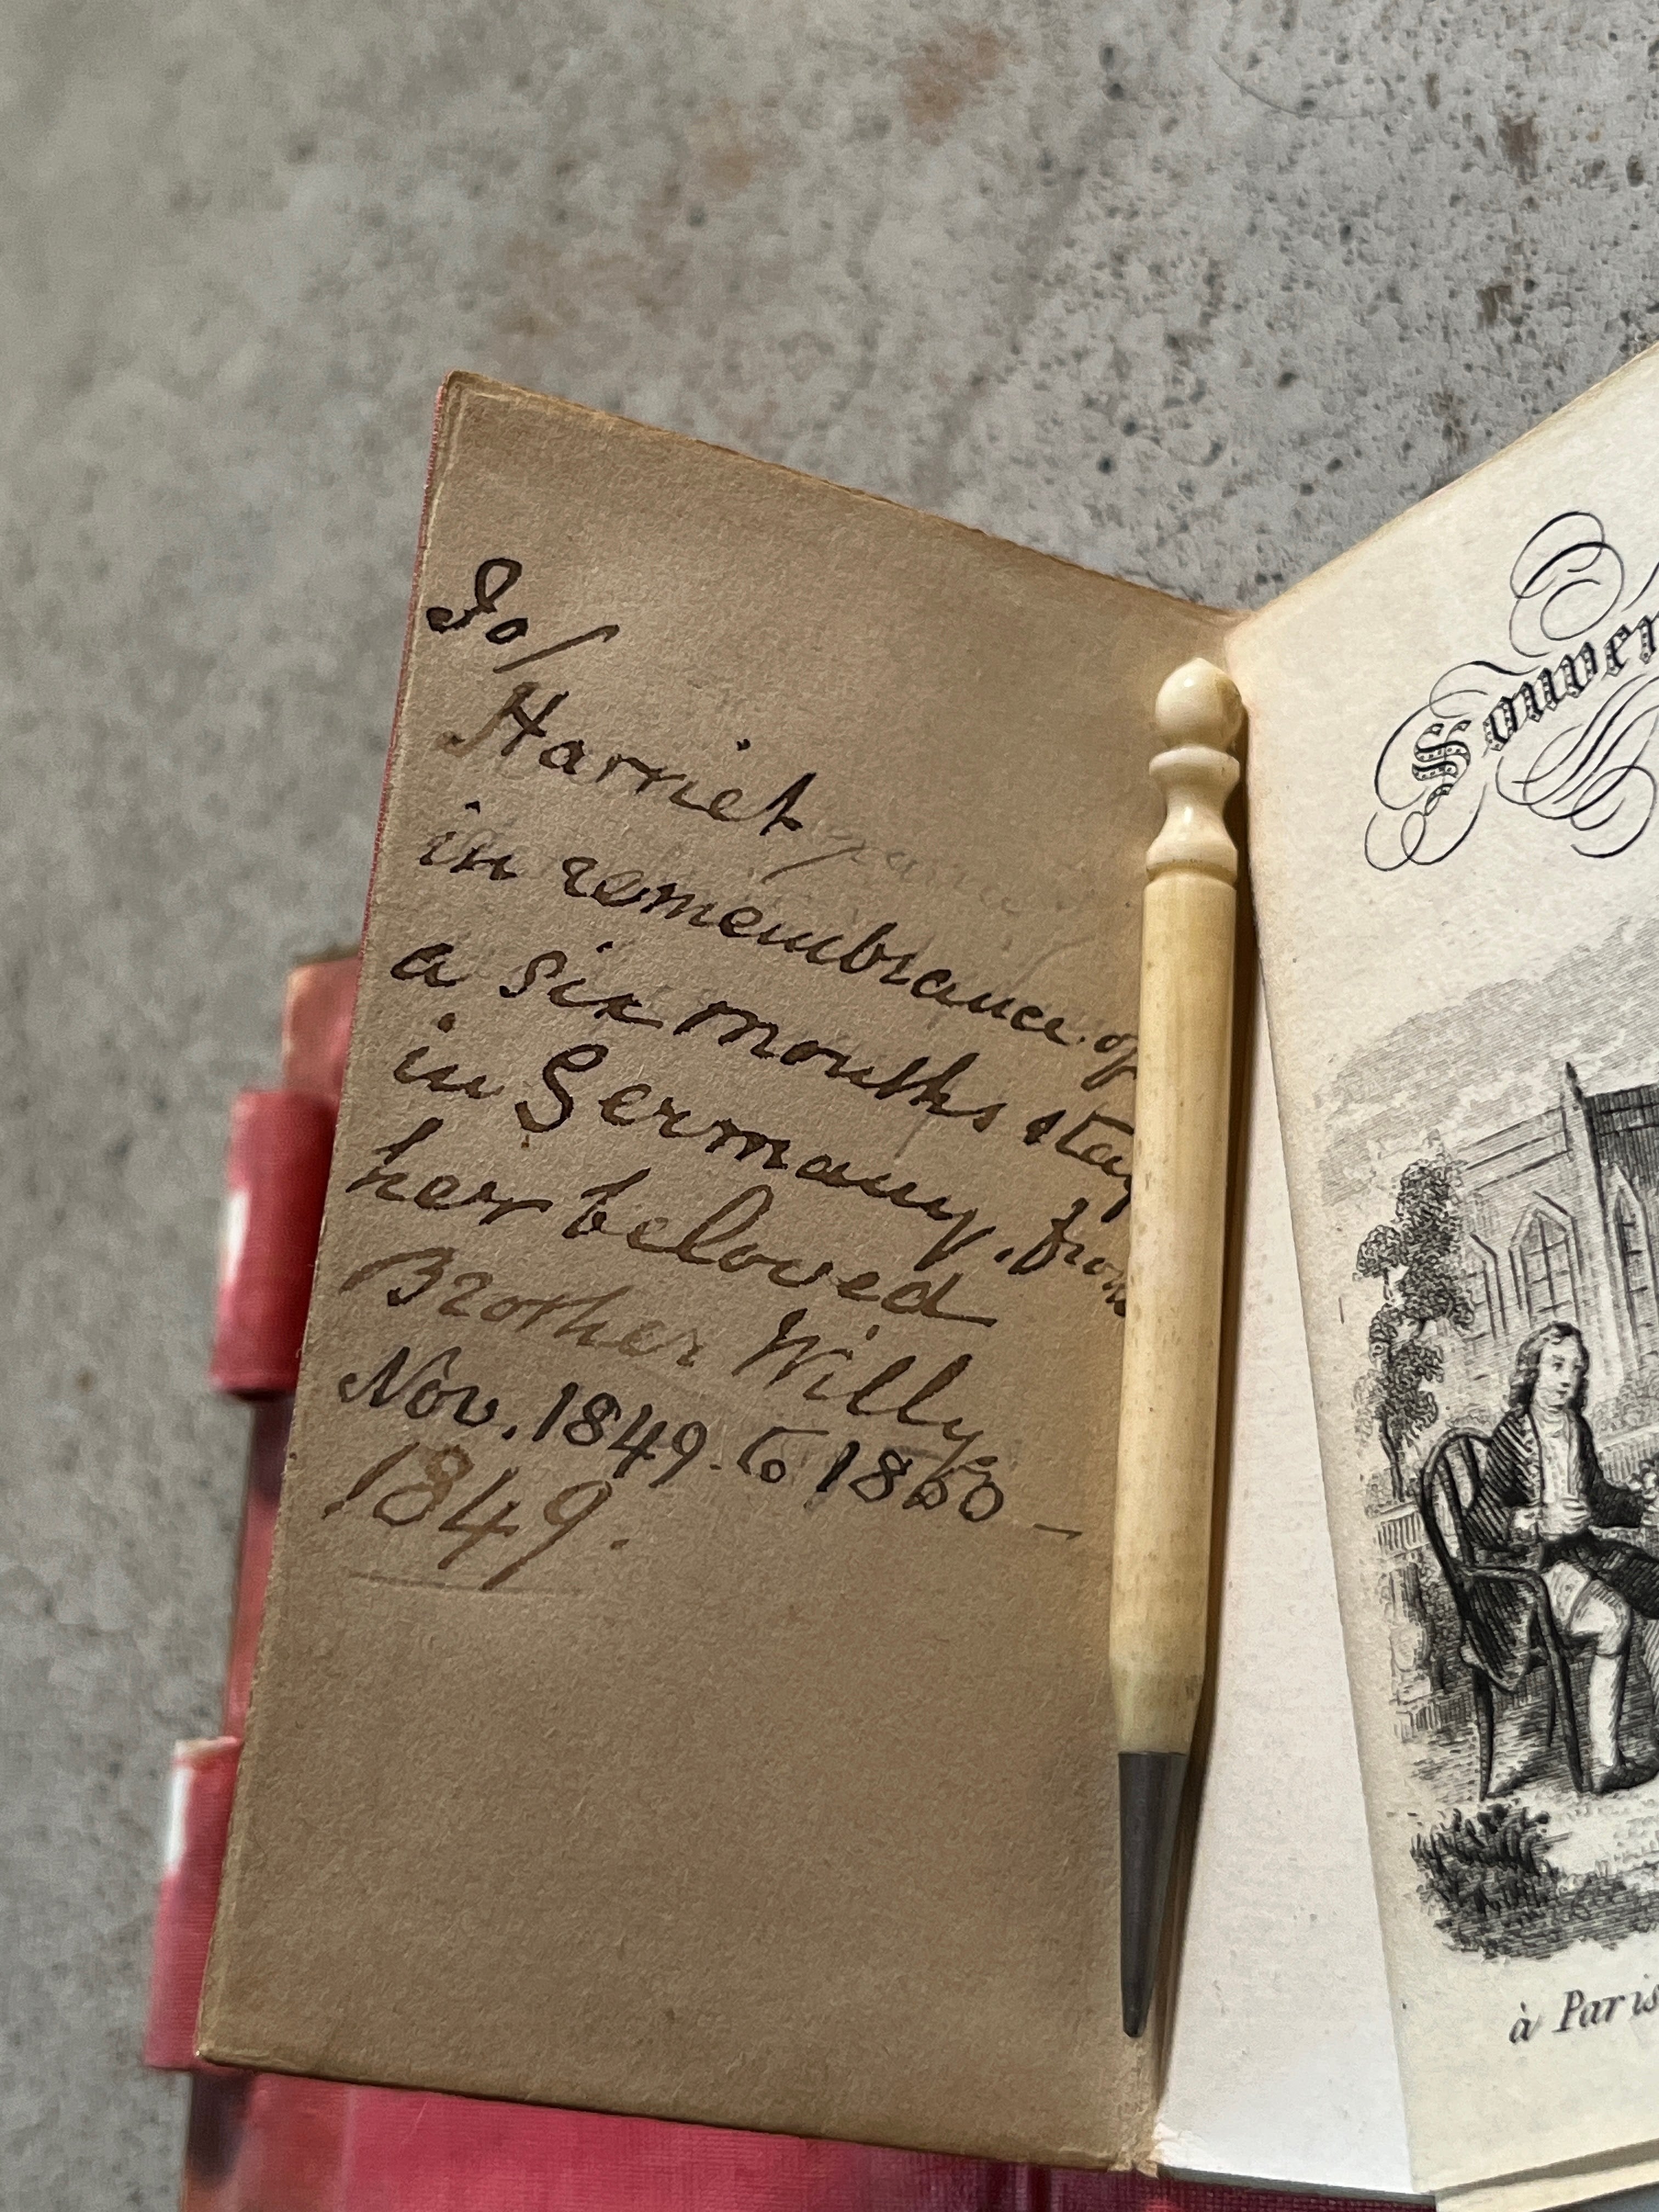 To/
Harriet
in remembrance of
a six months stay
in Germany, from
her beloved
Brother Willy
Nov. 1849. to 1850 –
1849.
à Paris